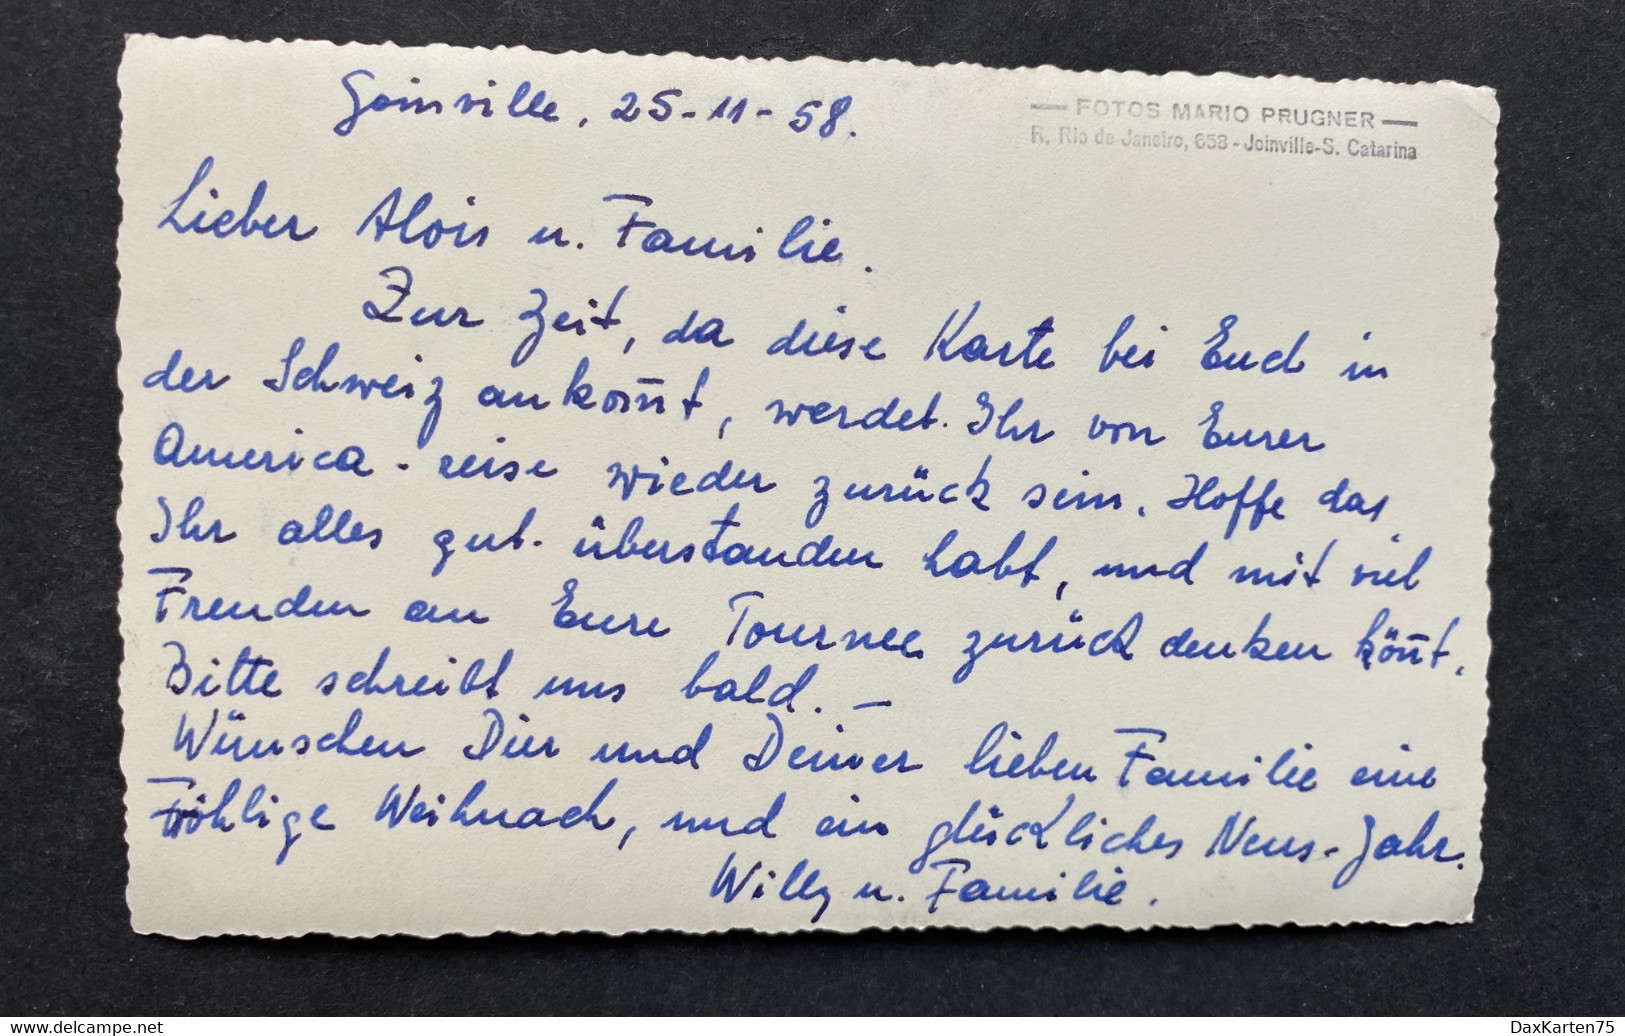 Joinville, 25-11-58.
— FOTOS MARIO PRUGNER —
R. Rio de Janeiro, 653 - Joinville-S. Catarina
Lieber Alois u. Familie.
Zur Zeit, da diese Karte bei Euch in
der Schweiz ankom̄t, werdet Ihr von Eurer
America-reise wieder zurück sein. Hoffe das
Ihr alles gut überstanden habt, und mit viel
Freuden an Eure Tournee zurück denken kön̄t.
Bitte schreibt uns bald. —
Wünschen Dir und Deiner lieben Familie eine
Fröhlige Weihnach, und ein glückliches Neus-Jahr.
Willy u. Familie.
www.delcampe.net
DaxKarten75